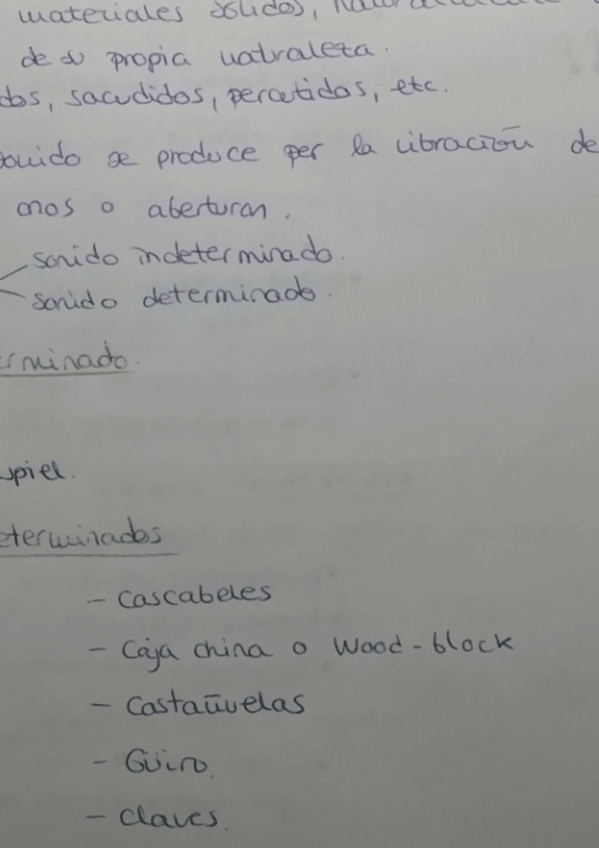 materiales sólidos,
de su propia natraleza.
dos, sacudidos, percutidos, etc.
se produce por la vibración de
o aberturan.
sonido indeterminado.
sonido determinado.
erminado.
piel.
eterminados
- Cascabeles
- Caja china o Wood-block
- Castañuelas
- Güiro.
- Claves.